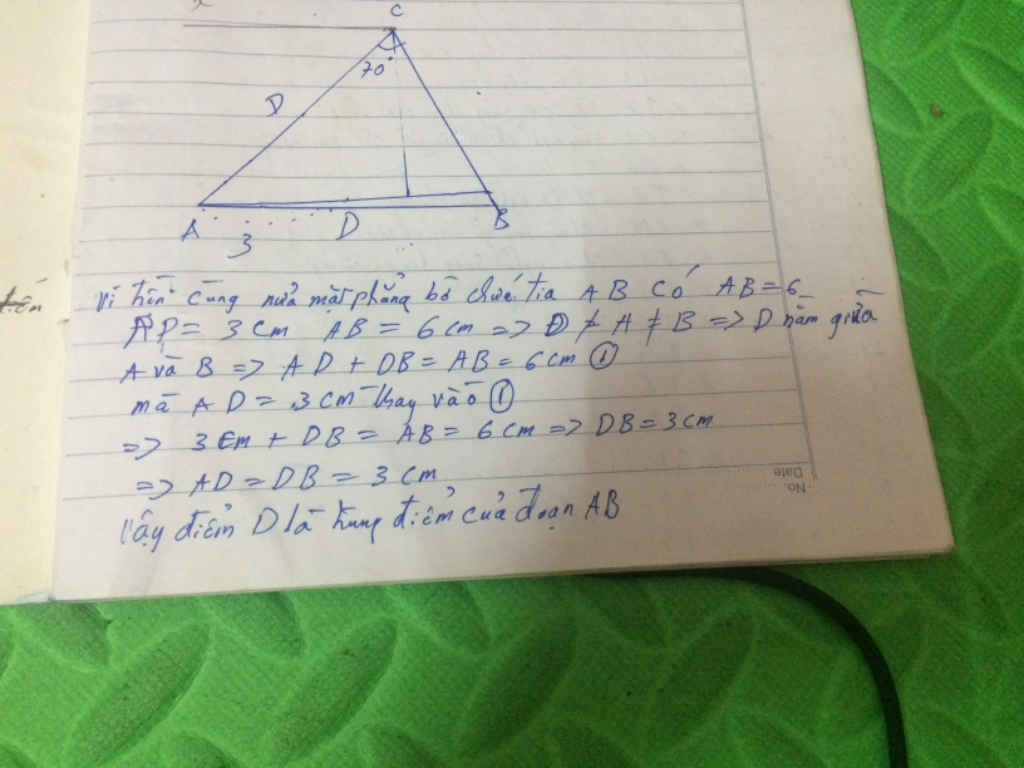 C
70°
D
A
3
D
B
tiến
vì trên cùng nửa mặt phẳng bờ chứa tia AB có AB=6
AD = 3 cm AB = 6 cm => D ≠ A ≠ B => D nằm giữa
A và B => AD + DB = AB = 6 cm ①
mà AD = 3 cm thay vào ①
=> 3 cm + DB = AB = 6 cm => DB = 3 cm
=> AD = DB = 3 cm
Vậy điểm D là trung điểm của đoạn AB
No.
Date